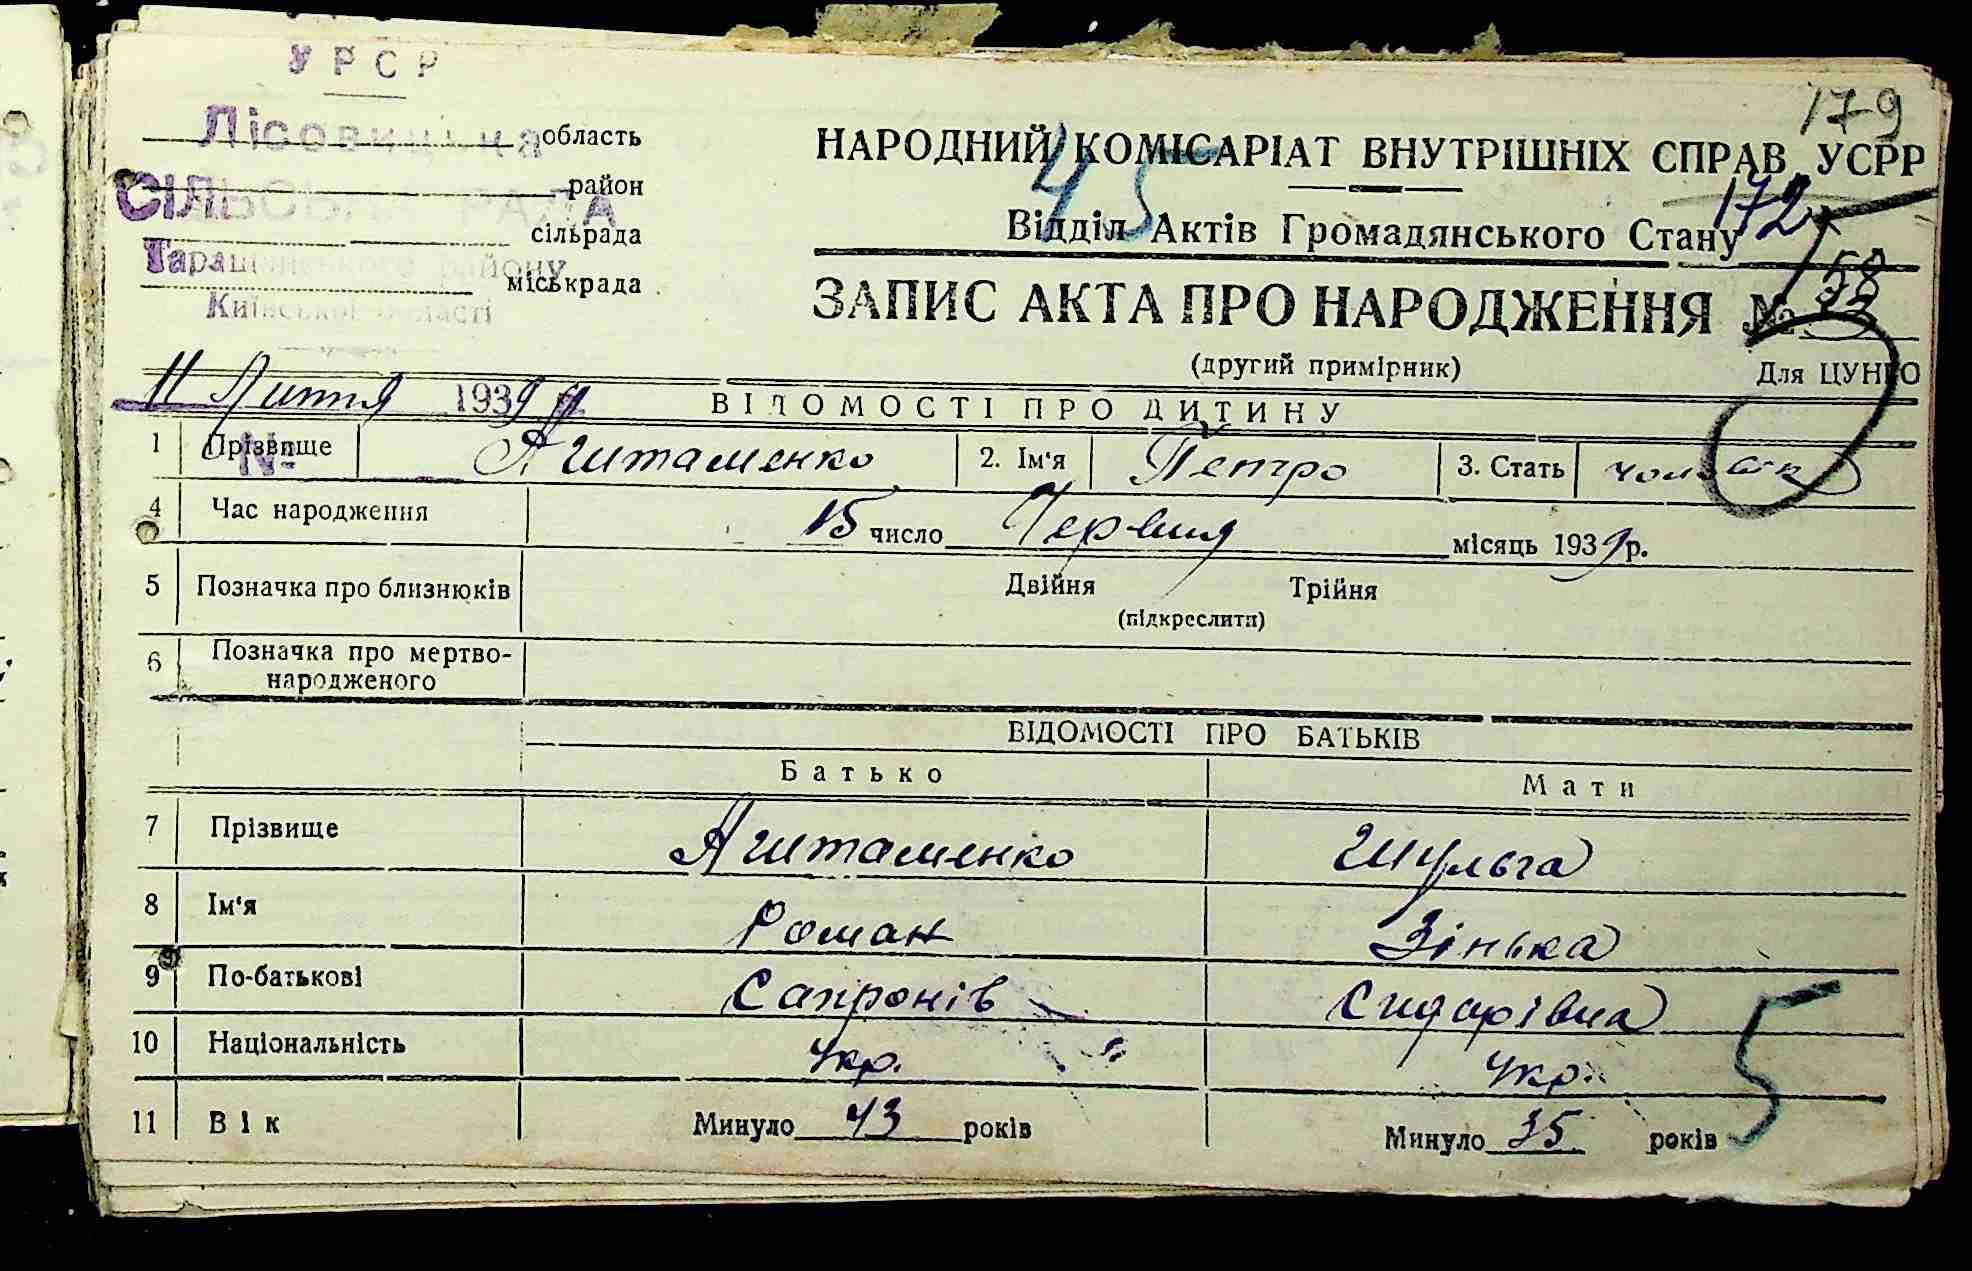 179
УРСР
Лісовицька область
СІЛЬСЬКА РАДА район
сільрада
Таращанського району міськрада
Київської області
НАРОДНИЙ КОМІСАРІАТ ВНУТРІШНІХ СПРАВ УСРР
45
172
Відділ Актів Громадянського Стану
ЗАПИС АКТА ПРО НАРОДЖЕННЯ № 58
(другий примірник) Для ЦУНГО
11 Липня 1939 р.
ВІДОМОСТІ ПРО ДИТИНУ
№
1 Прізвище Ашташенко 2. Ім'я Петро 3. Стать
4 Час народження 15 число Червня місяць 1939 р.
5 Позначка про близнюків Двійня Трійня
(підкреслити)
6 Позначка про мертво-
народженого
ВІДОМОСТІ ПРО БАТЬКІВ
Батько Мати
7 Прізвище Ашташенко Шульга
8 Ім'я Роман Зінька
9 По-батькові Сапронів Сидарівна
10 Національність Укр. Укр.
11 Вік Минуло 43 років Минуло 35 років
5